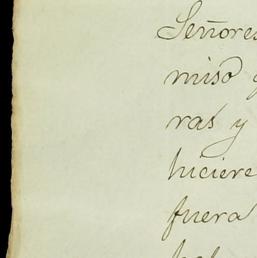 Señores
miso
ras y
hiciere
fuera